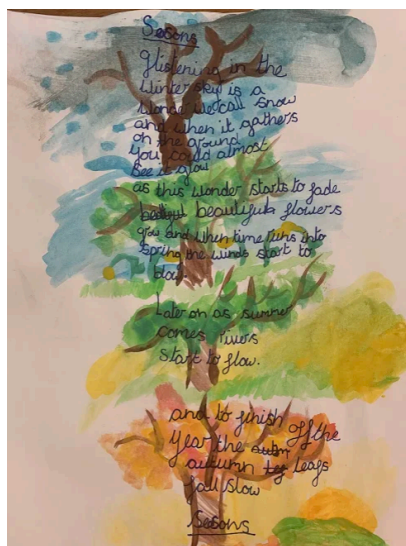 Sesons
Glistening in the
winter sky is a
wonder we call snow
and when it gathers
on the ground
you could almost
See it glow
as this wonder starts to fade
beautifull flowers
grow and when time runs into
Spring the winds start to
blow.
Later on as summer
comes rivers
Start to flow.
and to finish off the
year the
autumn leafs
fall slow
Sesons